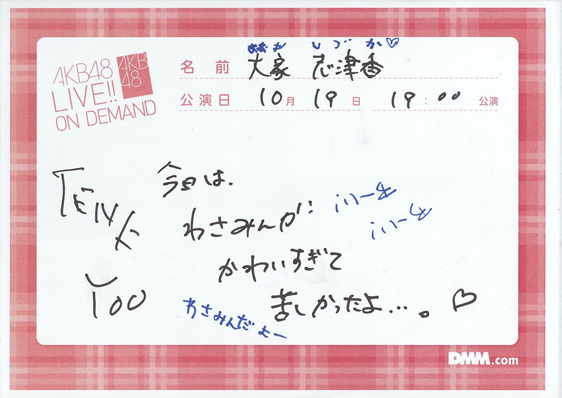 AKB48
LIVE!!
ON DEMAND
AKB
48
おおや しづか♡
名前 大家 志津香
公演日 10月 19日 19:00 公演
今日は、
わさみんが
かわいすぎて
苦しかったよ…。♡
わさみんだよー
YOO
DMM.com